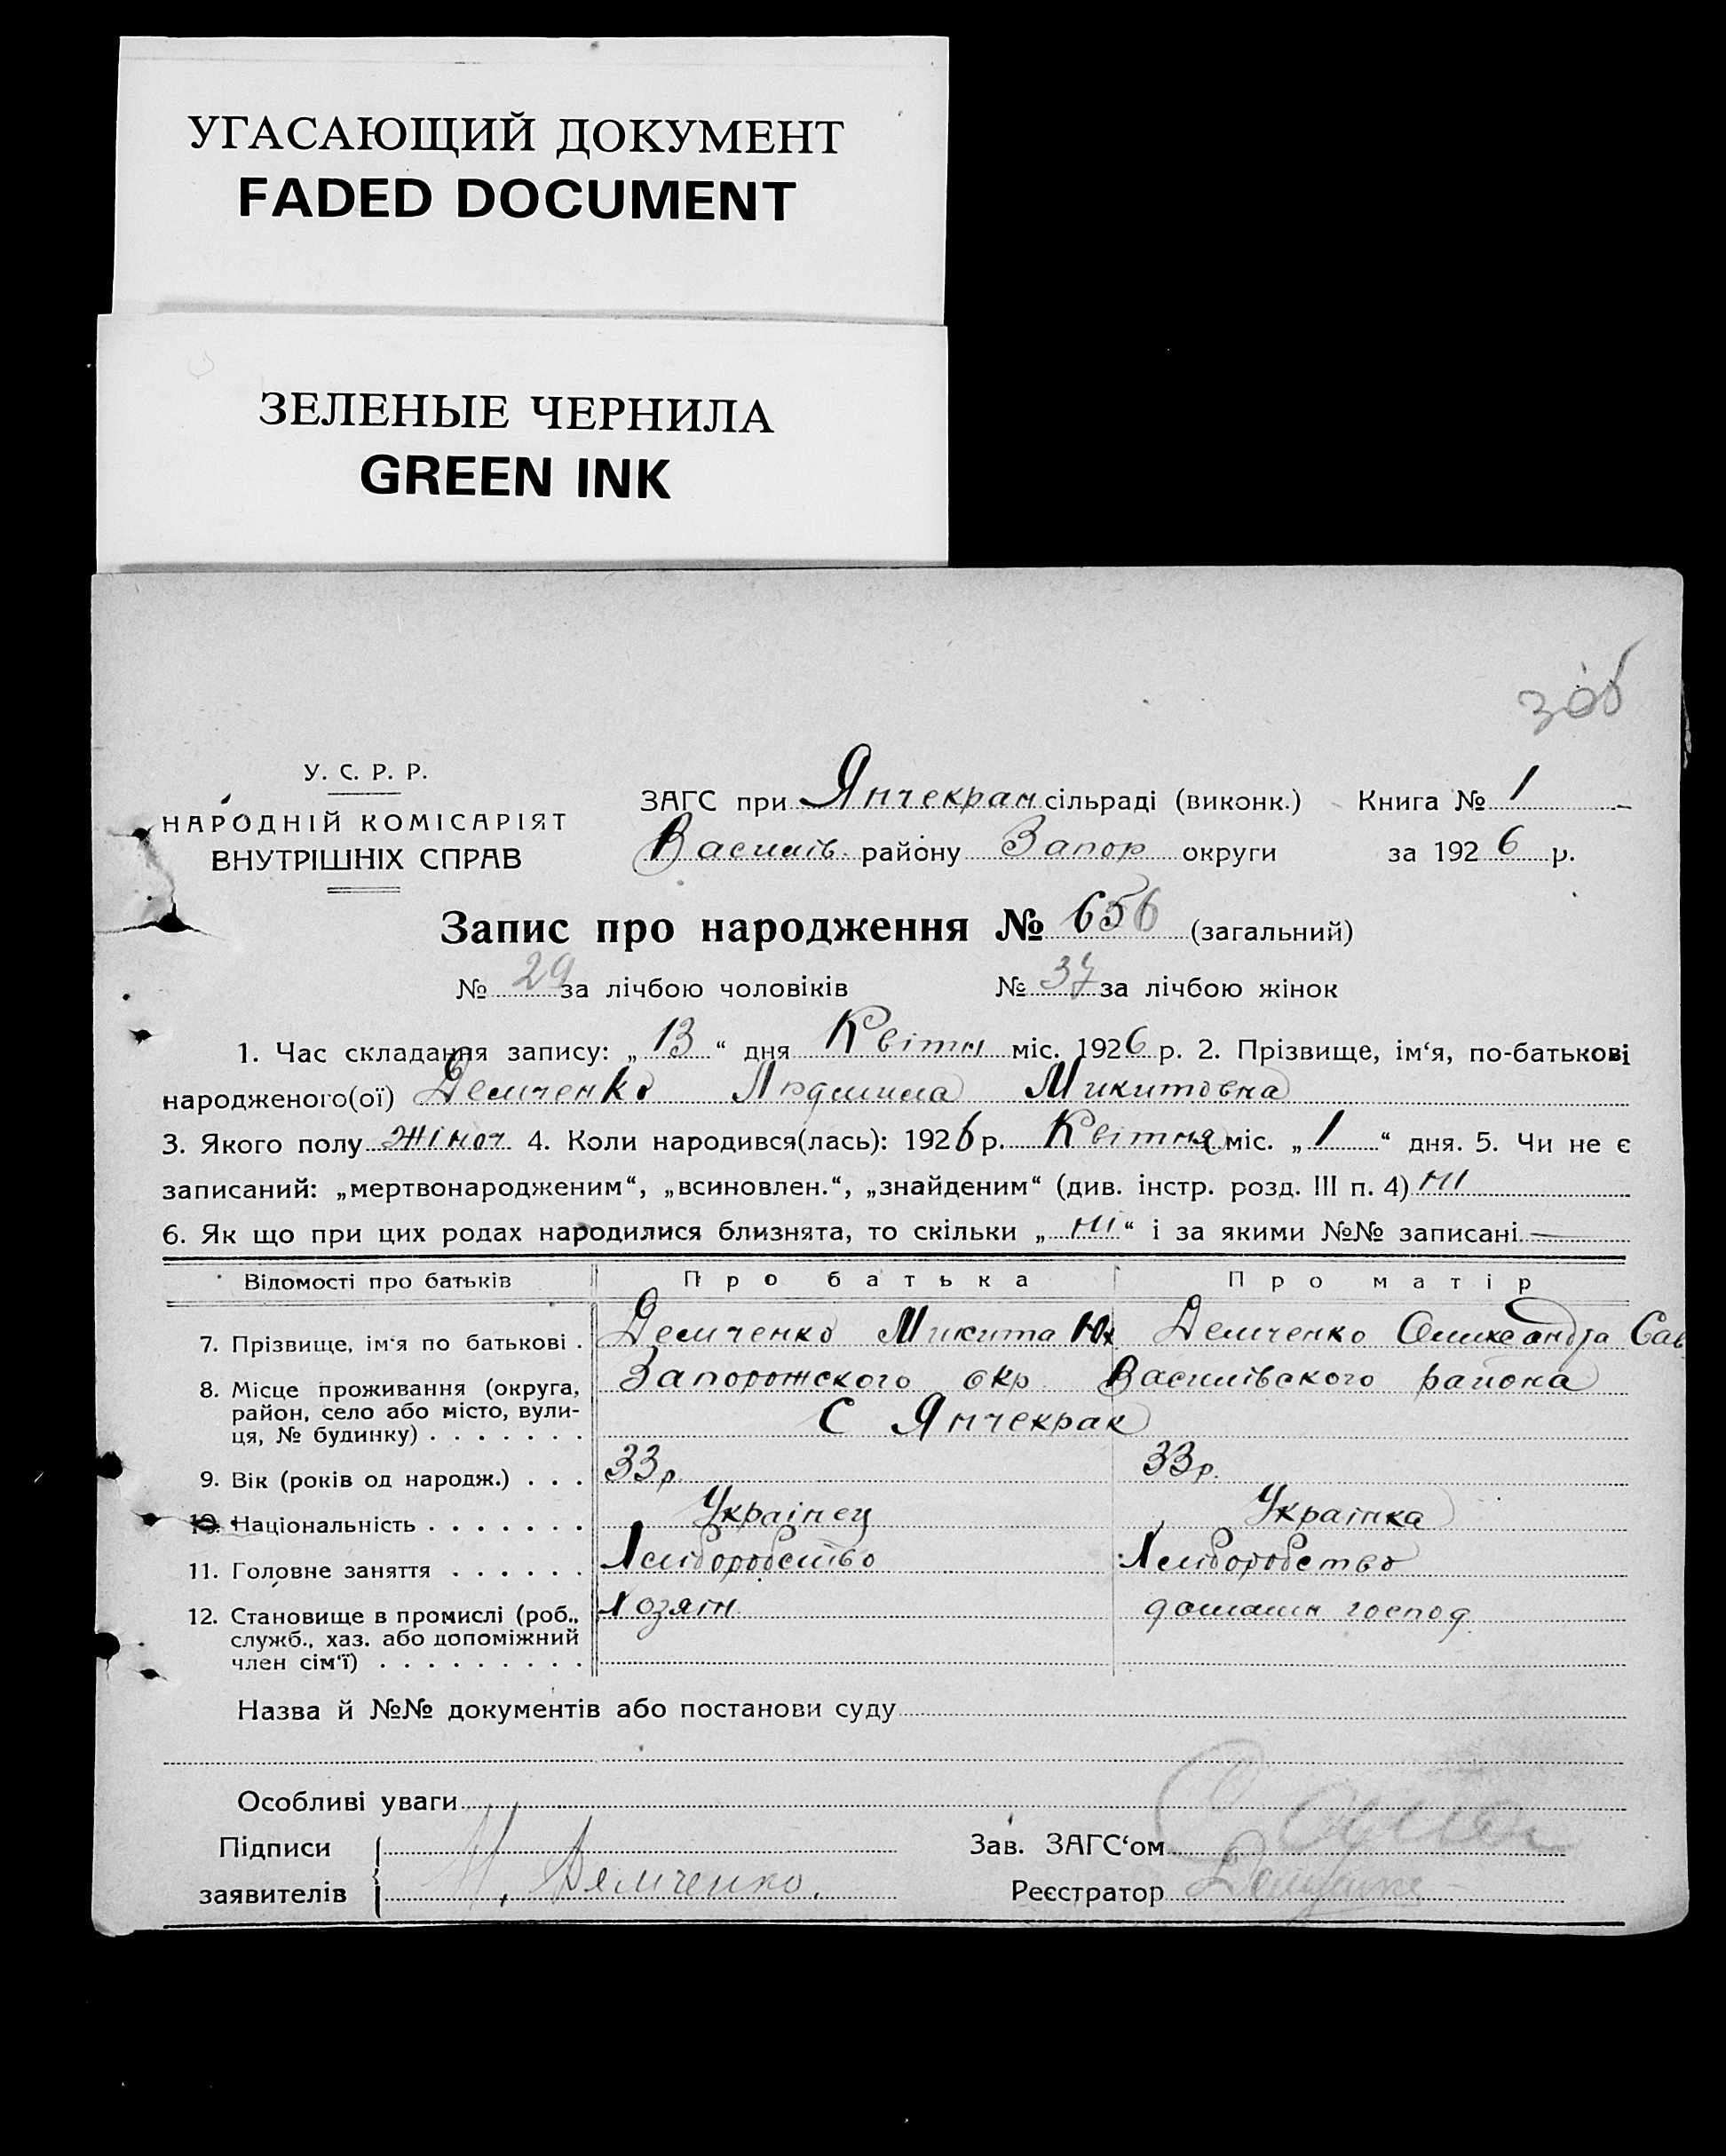 УГАСАЮЩИЙ ДОКУМЕНТ
FADED DOCUMENT
ЗЕЛЕНЫЕ ЧЕРНИЛА
GREEN INK
306
У. С. Р. Р.
НАРОДНІЙ КОМІСАРІЯТ
ВНУТРІШНІХ СПРАВ
ЗАГС при Янчекрак сільраді (виконк.) Книга № 1
Василів району Запор округи за 1926 р.
Запис про народження № 656 (загальний)
№ 29 за лічбою чоловіків № 37 за лічбою жінок
1. Час складання запису: „13“ дня Квітня міс. 1926 р. 2. Прізвище, ім‘я, по-батькові
народженого(ої) Демченко Людмила Микитовна
3. Якого полу жіноч 4. Коли народився(лась): 1926 р. Квітня міс. „1“ дня. 5. Чи не є
записаний: „мертвонародженим“, „всиновлен.“, „знайденим“ (див. інстр. розд. III п. 4) ні
6. Як що при цих родах народилися близнята, то скільки „ні“ і за якими №№ записані —
Відомості про батьків Про батька Про матір
7. Прізвище, ім‘я по батькові . Демченко Микита Демченко Олександра Сав
8. Місце проживання (округа, Запорожского окр Василівского района
район, село або місто, вули-
ця, № будинку) . . . . . . . С Янчекрак
9. Вік (років од народж.) . . . 33р 33р.
10. Національність . . . . . . . Українец Українка
11. Головне заняття . . . . . . Хліборобство Хліборобство
12. Становище в промислі (роб., Хозяін домашн господ.
служб., хаз. або допоміжний
член сім‘ї) . . . . . . . . .
Назва й №№ документів або постанови суду
Особливі уваги
Підписи Зав. ЗАГС‘ом
заявителів М. Демченко. Реєстратор